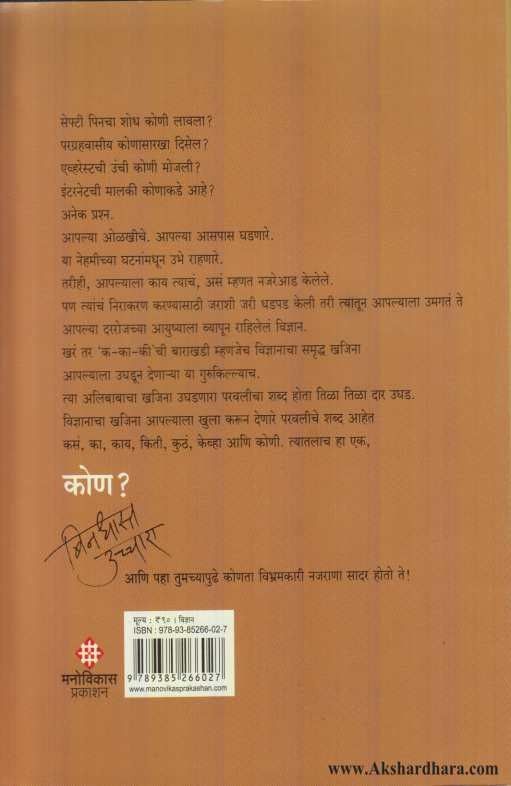 सेफ्टी पिनचा शोध कोणी लावला?
परग्रहवासीय कोणासारखा दिसेल?
एव्हरेस्टची उंची कोणी मोजली?
इंटरनेटची मालकी कोणाकडे आहे?
अनेक प्रश्न.
आपल्या ओळखीचे. आपल्या आसपास घडणारे.
या नेहमीच्या घटनांमधून उभे राहणारे.
तरीही, आपल्याला काय त्याचं, असं म्हणत नजरेआड केलेले.
पण त्यांचं निराकरण करण्यासाठी जराशी जरी धडपड केली तरी त्यातून आपल्याला उमगतं ते
आपल्या दररोजच्या आयुष्याला व्यापून राहिलेलं विज्ञान.
खरं तर 'क-का-की'ची बाराखडी म्हणजेच विज्ञानाचा समृद्ध खजिना
आपल्याला उघडून देणाऱ्या या गुरुकिल्ल्याच.
त्या अलिबाबाचा खजिना उघडणारा परवलीचा शब्द होता तिळा तिळा दार उघड.
विज्ञानाचा खजिना आपल्याला खुला करून देणारे परवलीचे शब्द आहेत
कसं, का, काय, किती, कुठं, केव्हा आणि कोणी. त्यातलाच हा एक,
कोण?
बिनधास्त
उच्चारा
आणि पहा तुमच्यापुढे कोणता विभ्रमकारी नजराणा सादर होतो ते!
मूल्य : ₹ ९० । विज्ञान
ISBN : 978-93-85266-02-7
9 789385 266027
www.manovikasprakashan.com
मनोविकास
प्रकाशन
www.Akshardhara.com